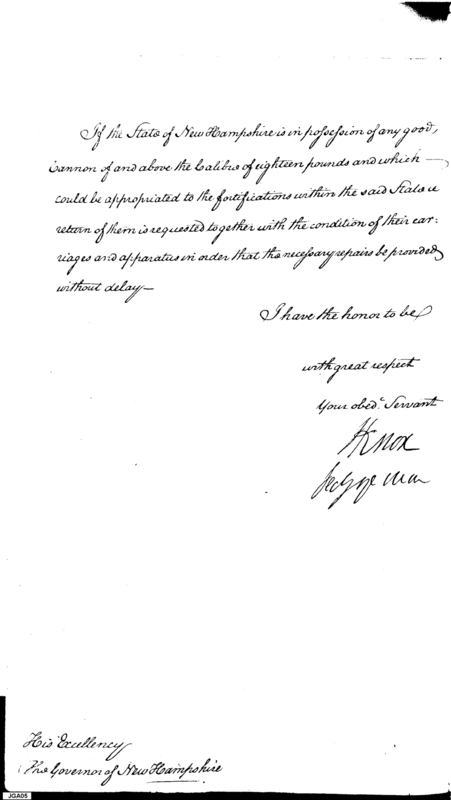 If the State of New Hampshire is in possession of any good,
cannon of and above the Calibre of eighteen pounds and which —
could be appropriated to the fortifications within the said State a
return of them is requested together with the condition of their car:
riages and apparatus in order that the necessary repairs be provided
without delay —
I have the honor to be
with great respect
Your obedt. Servant
HKnox
Secy of War
His Excellency
The Governor of New Hampshire
JGA05